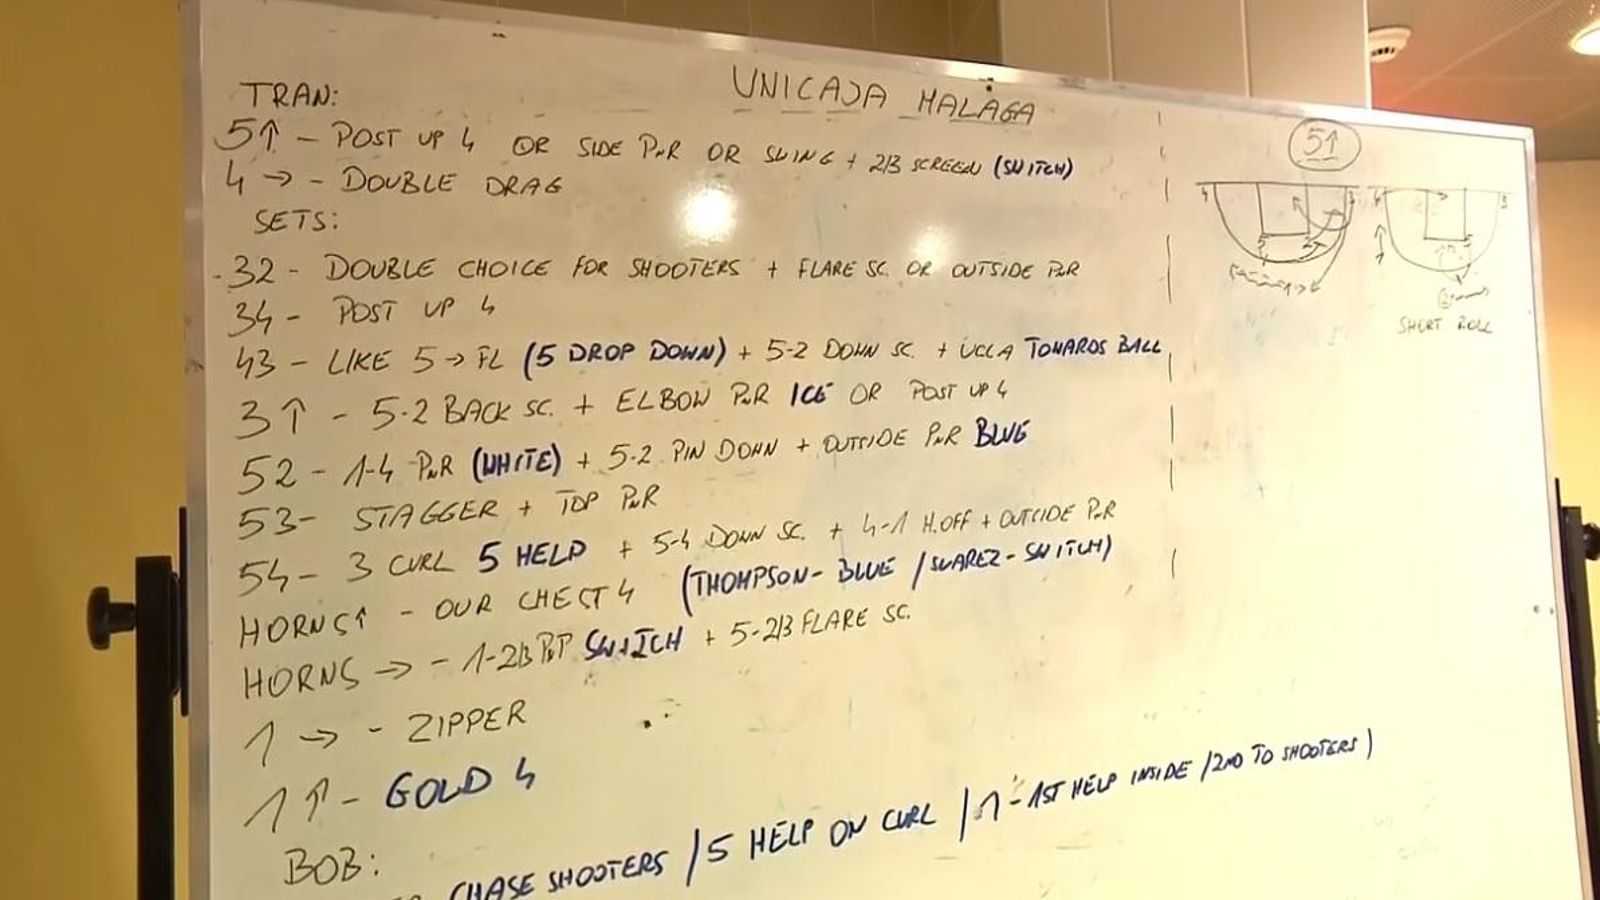 UNICAJA MALAGA
TRAN:
5↑ - POST UP 4 OR SIDE PNR OR SWING + 2/3 SCREEN (SWITCH)
4 → - DOUBLE DRAG
SETS:
32 - DOUBLE CHOICE FOR SHOOTERS + FLARE SC. OR OUTSIDE PNR
34 - POST UP 4
43 - LIKE 5 → FL (5 DROP DOWN) + 5-2 DOWN SC. + UCLA TOWARDS BALL
3↑ - 5-2 BACK SC. + ELBOW PNR ICE OR POST UP 4
52 - 1-4 PNR (WHITE) + 5-2 PIN DOWN + OUTSIDE PNR BLUE
53 - STAGGER + TOP PNR
54 - 3 CURL 5 HELP + 5-4 DOWN SC. + 4-1 H.OFF + OUTSIDE PNR
HORNS↑ - OUR CHEST 4 (THOMPSON - BLUE / SUAREZ - SWITCH)
HORNS → - 1-2/3 PNP SWITCH + 5-2/3 FLARE SC.
1 → - ZIPPER
1↑ - GOLD 4
BOB:
CHASE SHOOTERS / 5 HELP ON CURL / 1 - 1ST HELP INSIDE / 2ND TO SHOOTERS)
5↑
SHORT ROLL